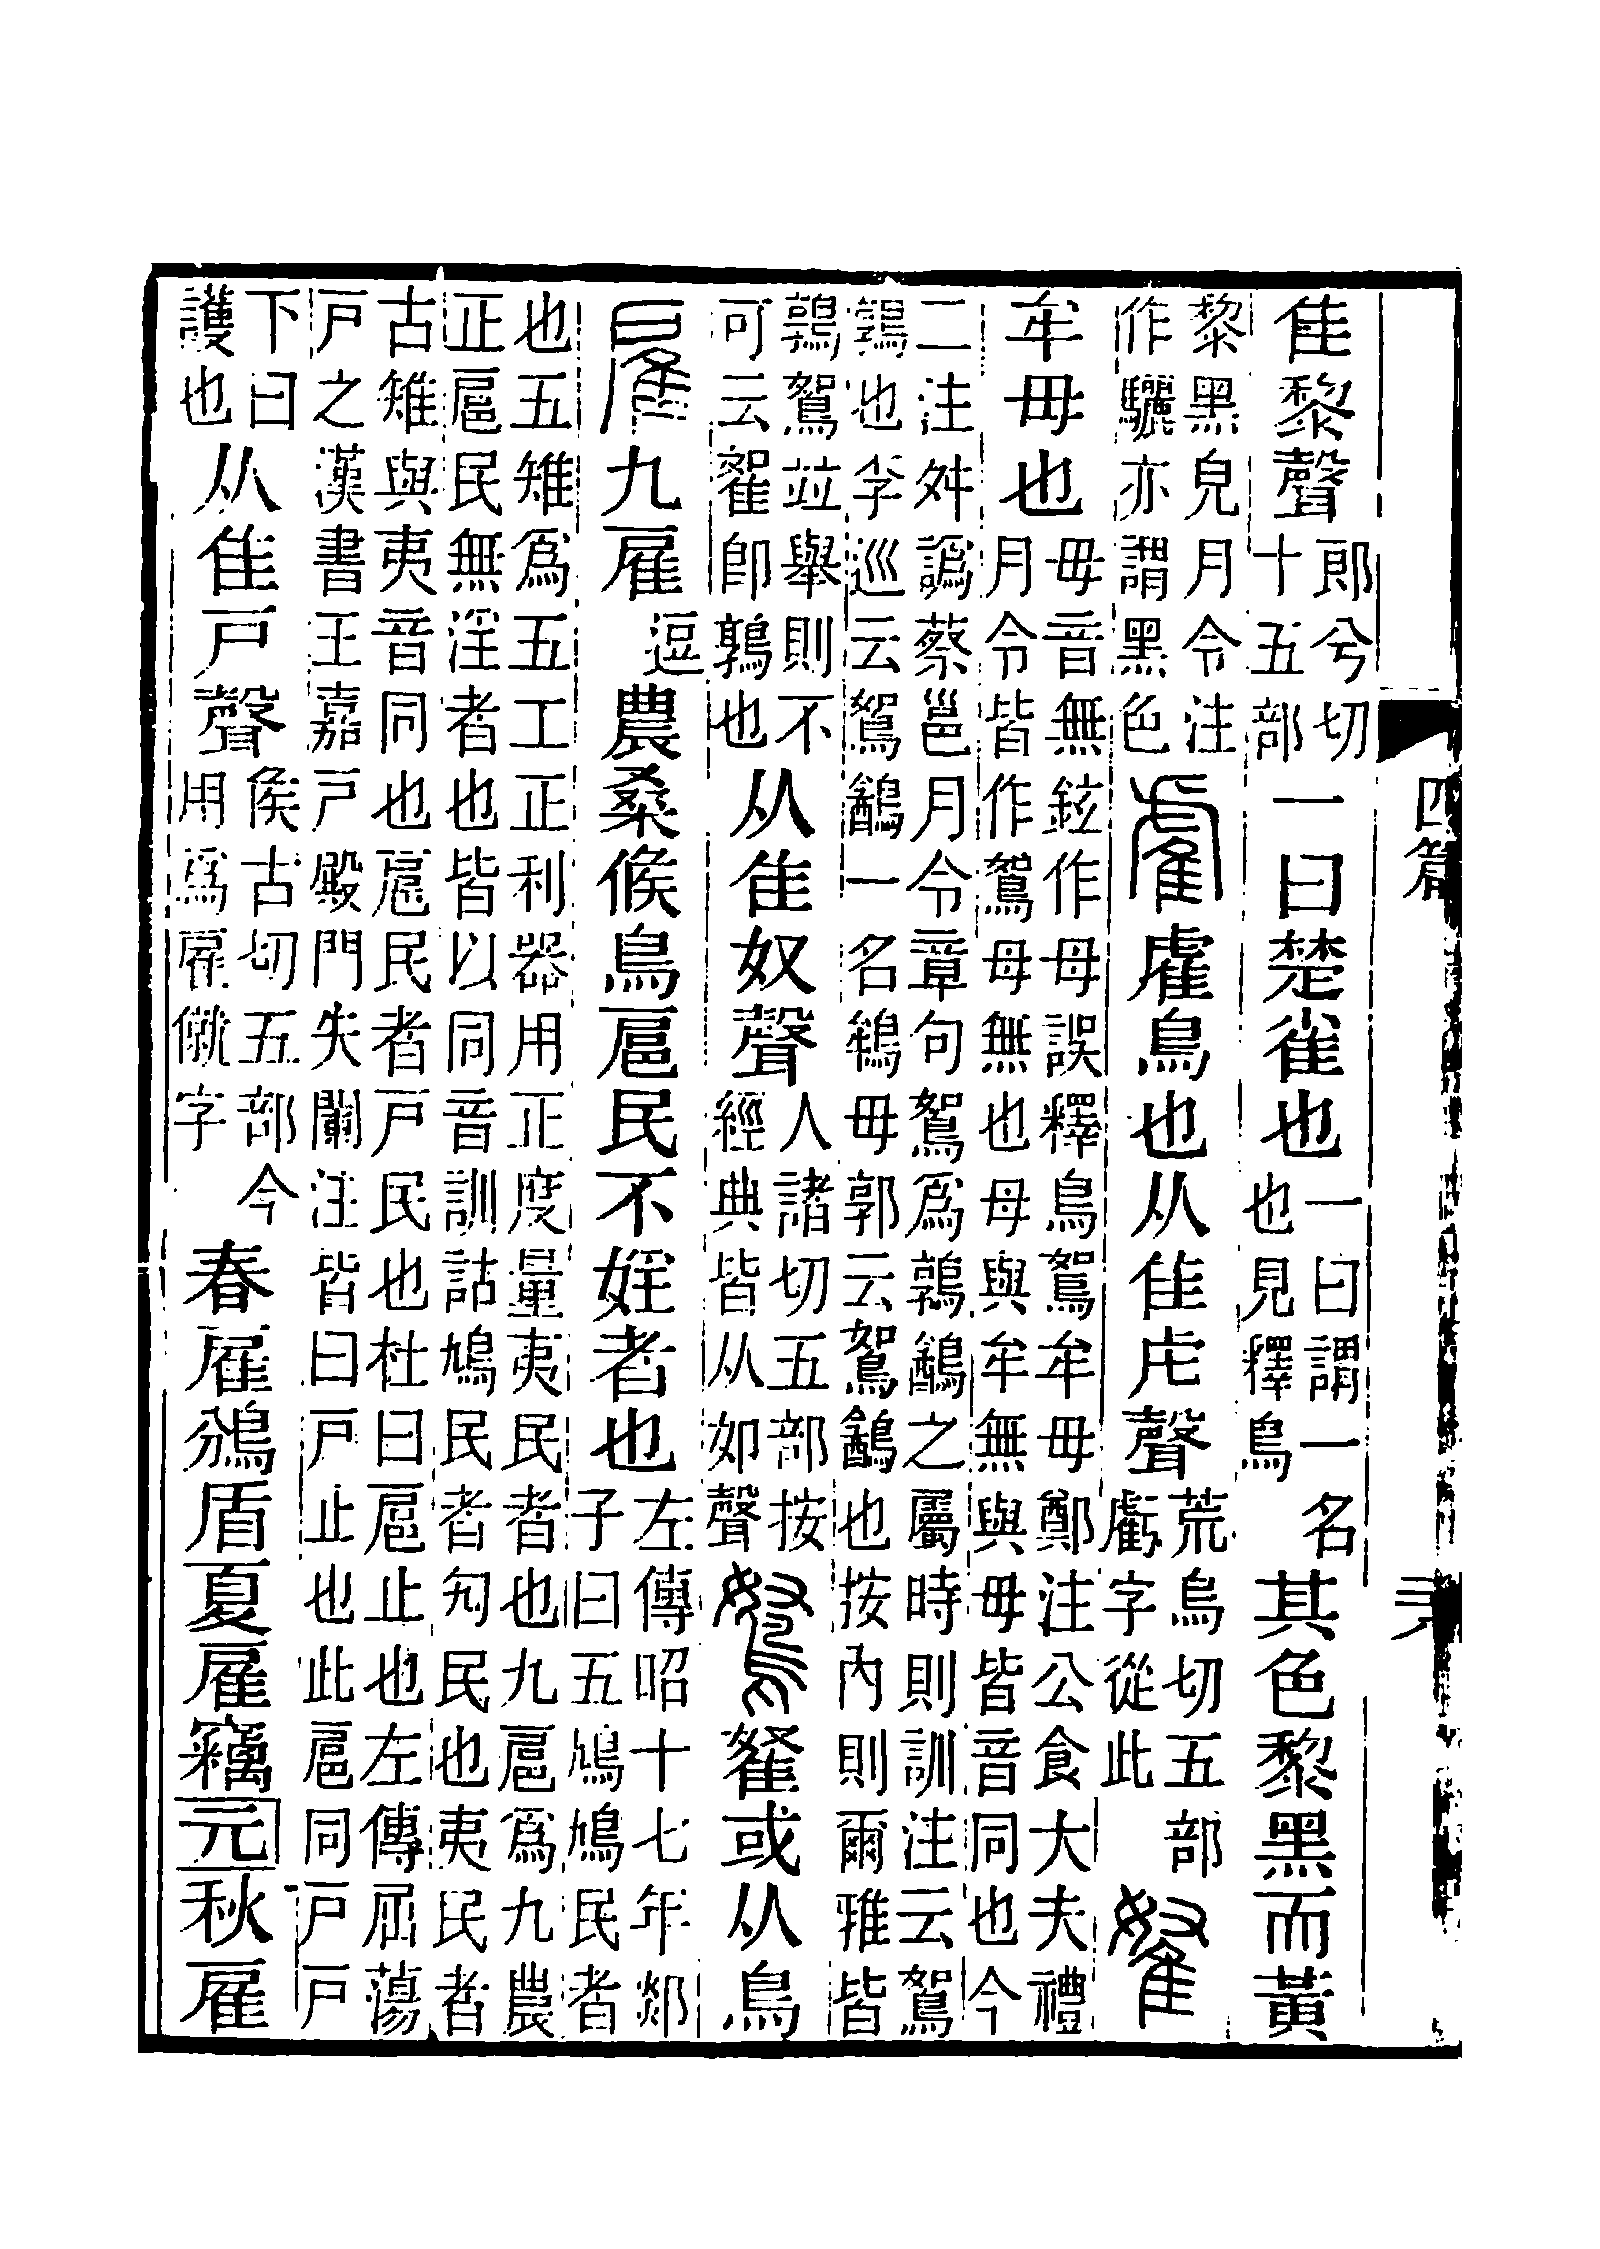 隹黎聲郎兮切十五部一曰楚雀也一曰謂一名也見釋鳥其色黎黑而黃
黎黑皃月令注作驪亦謂黑色雐雐鳥也从隹虍聲荒烏切五部虧字從此䨀
牟毋也毋音無鉉作母誤釋鳥鴽牟毋鄭注公食大夫禮月令皆作鴽母無也母與牟無與毋皆音同也今
二注舛譌蔡邕月令章句鴽爲鶉䳺之屬時則訓注云鴽鶉也李巡云鴽䳺一名鴾毋郭云鴽䳺也按內則爾雅皆
鶉鴽竝舉則不可云䨀卽鶉也从隹奴聲人諸切五部按經典皆从如聲䨀或从鳥
雇九雇逗農桑候鳥扈民不婬者也左傳昭十七年郯子曰五鳩鳩民者
也五雉爲五工正利器用正度量夷民者也九扈爲九農正扈民無淫者也皆以同音訓詁鳩民者勼民也夷民者
古雉與夷音同也扈民者戶民也杜曰扈止也左傳屈蕩戶之漢書王嘉戶殿門失闌注皆曰戶止也此扈同戶戶
下曰護也从隹戶聲侯古切五部今用爲雇僦字春雇鳻盾夏雇竊元秋雇
四篇